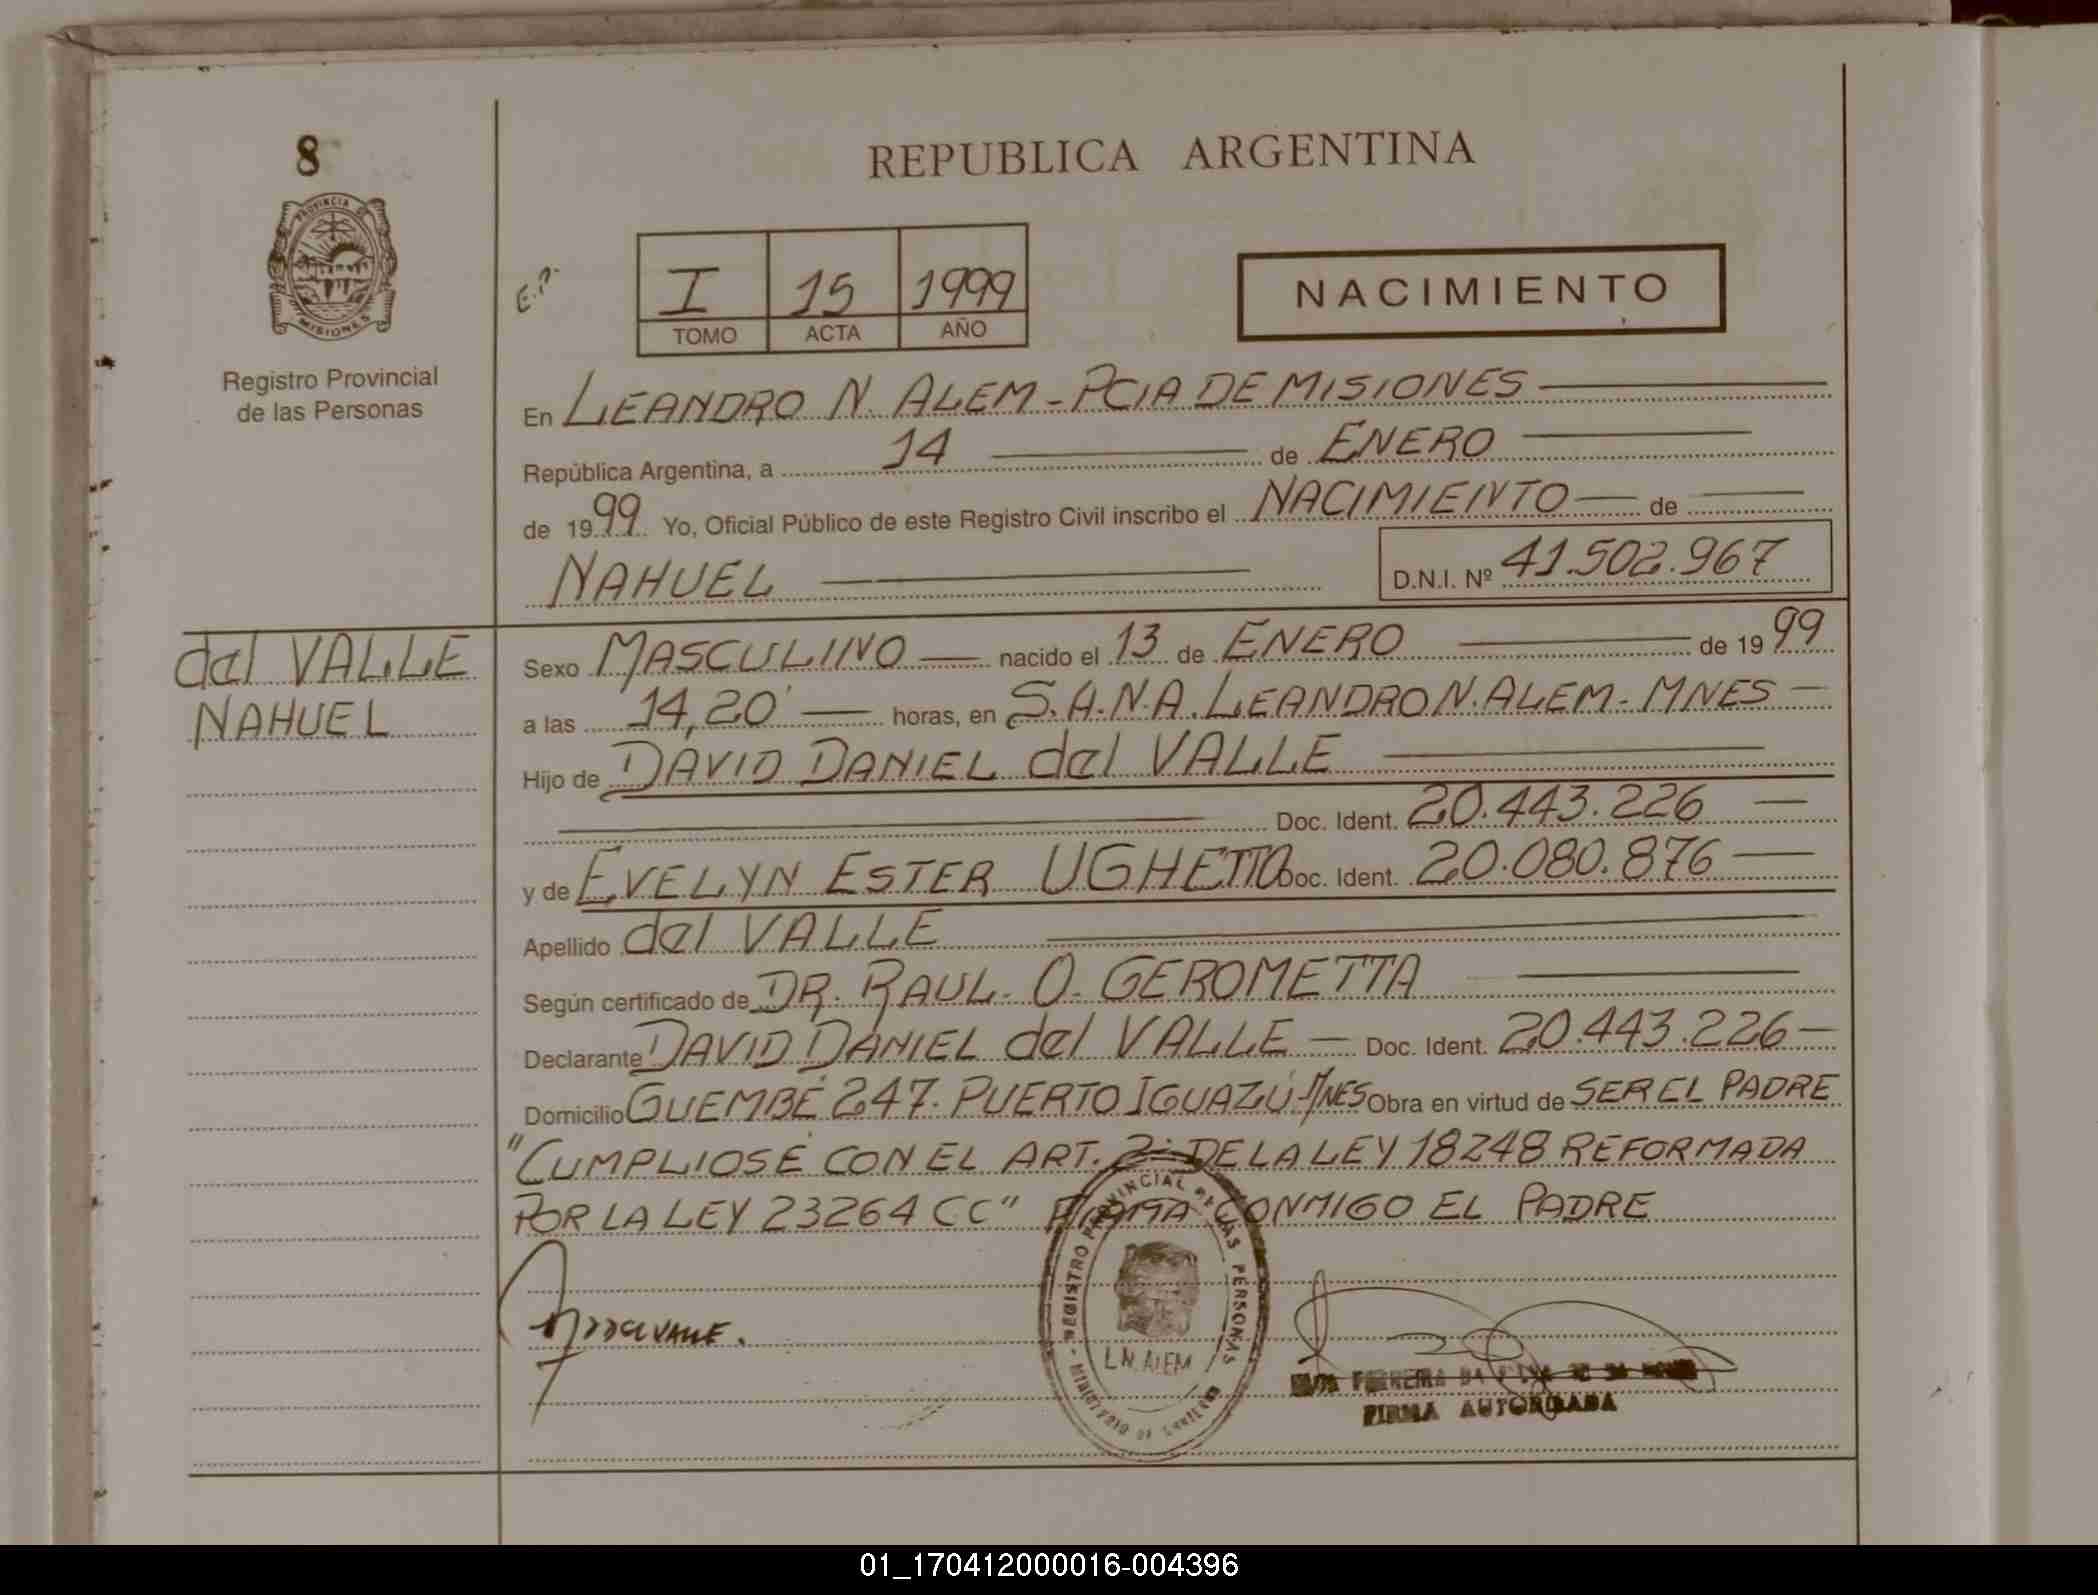 8
PROVINCIA DE
MISIONES
Registro Provincial
de las Personas
REPUBLICA ARGENTINA
E.P.
I 15 1999
TOMO ACTA AÑO
NACIMIENTO
En LEANDRO N. ALEM - PCIA DE MISIONES
República Argentina, a 14 de ENERO
de 1999 Yo, Oficial Público de este Registro Civil inscribo el NACIMIENTO de
NAHUEL D.N.I. Nº 41.502.967
del VALLE
NAHUEL
Sexo MASCULINO nacido el 13 de ENERO de 1999
a las 14,20' horas, en S.A.N.A. LEANDRO N. ALEM - MNES
Hijo de DAVID DANIEL del VALLE
Doc. Ident. 20.443.226
y de EVELYN ESTER UGHETTO Doc. Ident. 20.080.876
Apellido del VALLE
Según certificado de DR. RAUL O. GEROMETTA
Declarante DAVID DANIEL del VALLE Doc. Ident. 20.443.226
Domicilio GUEMBÉ 247. PUERTO IGUAZÚ-MNES Obra en virtud de SER EL PADRE
"CUMPLIOSE CON EL ART. 2: DE LA LEY 18248 REFORMADA
POR LA LEY 23264 CC" FIRMA CONMIGO EL PADRE
REGISTRO PROVINCIAL DE LAS PERSONAS
L.N. ALEM
del VALLE.
FERREIRA DA
FIRMA AUTORIZADA
01_170412000016-004396